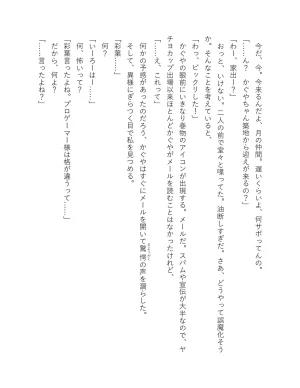 今だ、今。今来るんだよ、月の仲間。遅いくらいよ、何サボってんの。
「……ん？　かぐやちゃん築地から迎えが来るの？」
「わー、家出ー？」
おっと、いけない。二人の前で堂々と喋ってた。油断しすぎだ。さあ、どうやって誤魔化そう
か。そんなことを考えていると、
「わっ、ビックリした！」
かぐやの眼前にいきなり巻物のアイコンが出現する。メールだ。スパムや宣伝が大半なので、ヤ
チヨカップ出場以来ほとんどかぐやがメールを読むことはなかったけれど、
「……え、これって」
何かの予感があったのだろう、かぐやはすぐにメールを開いて驚愕の声を漏らした。
そして、異様にぎらつく目で私を見つめる。
「彩葉……」
「何、怖いって？」
「いーろーはー……」
「だから、何よ？」
「……言ったよね？」
「彩葉言ったよね。プロゲーマー様は格が違うって……」